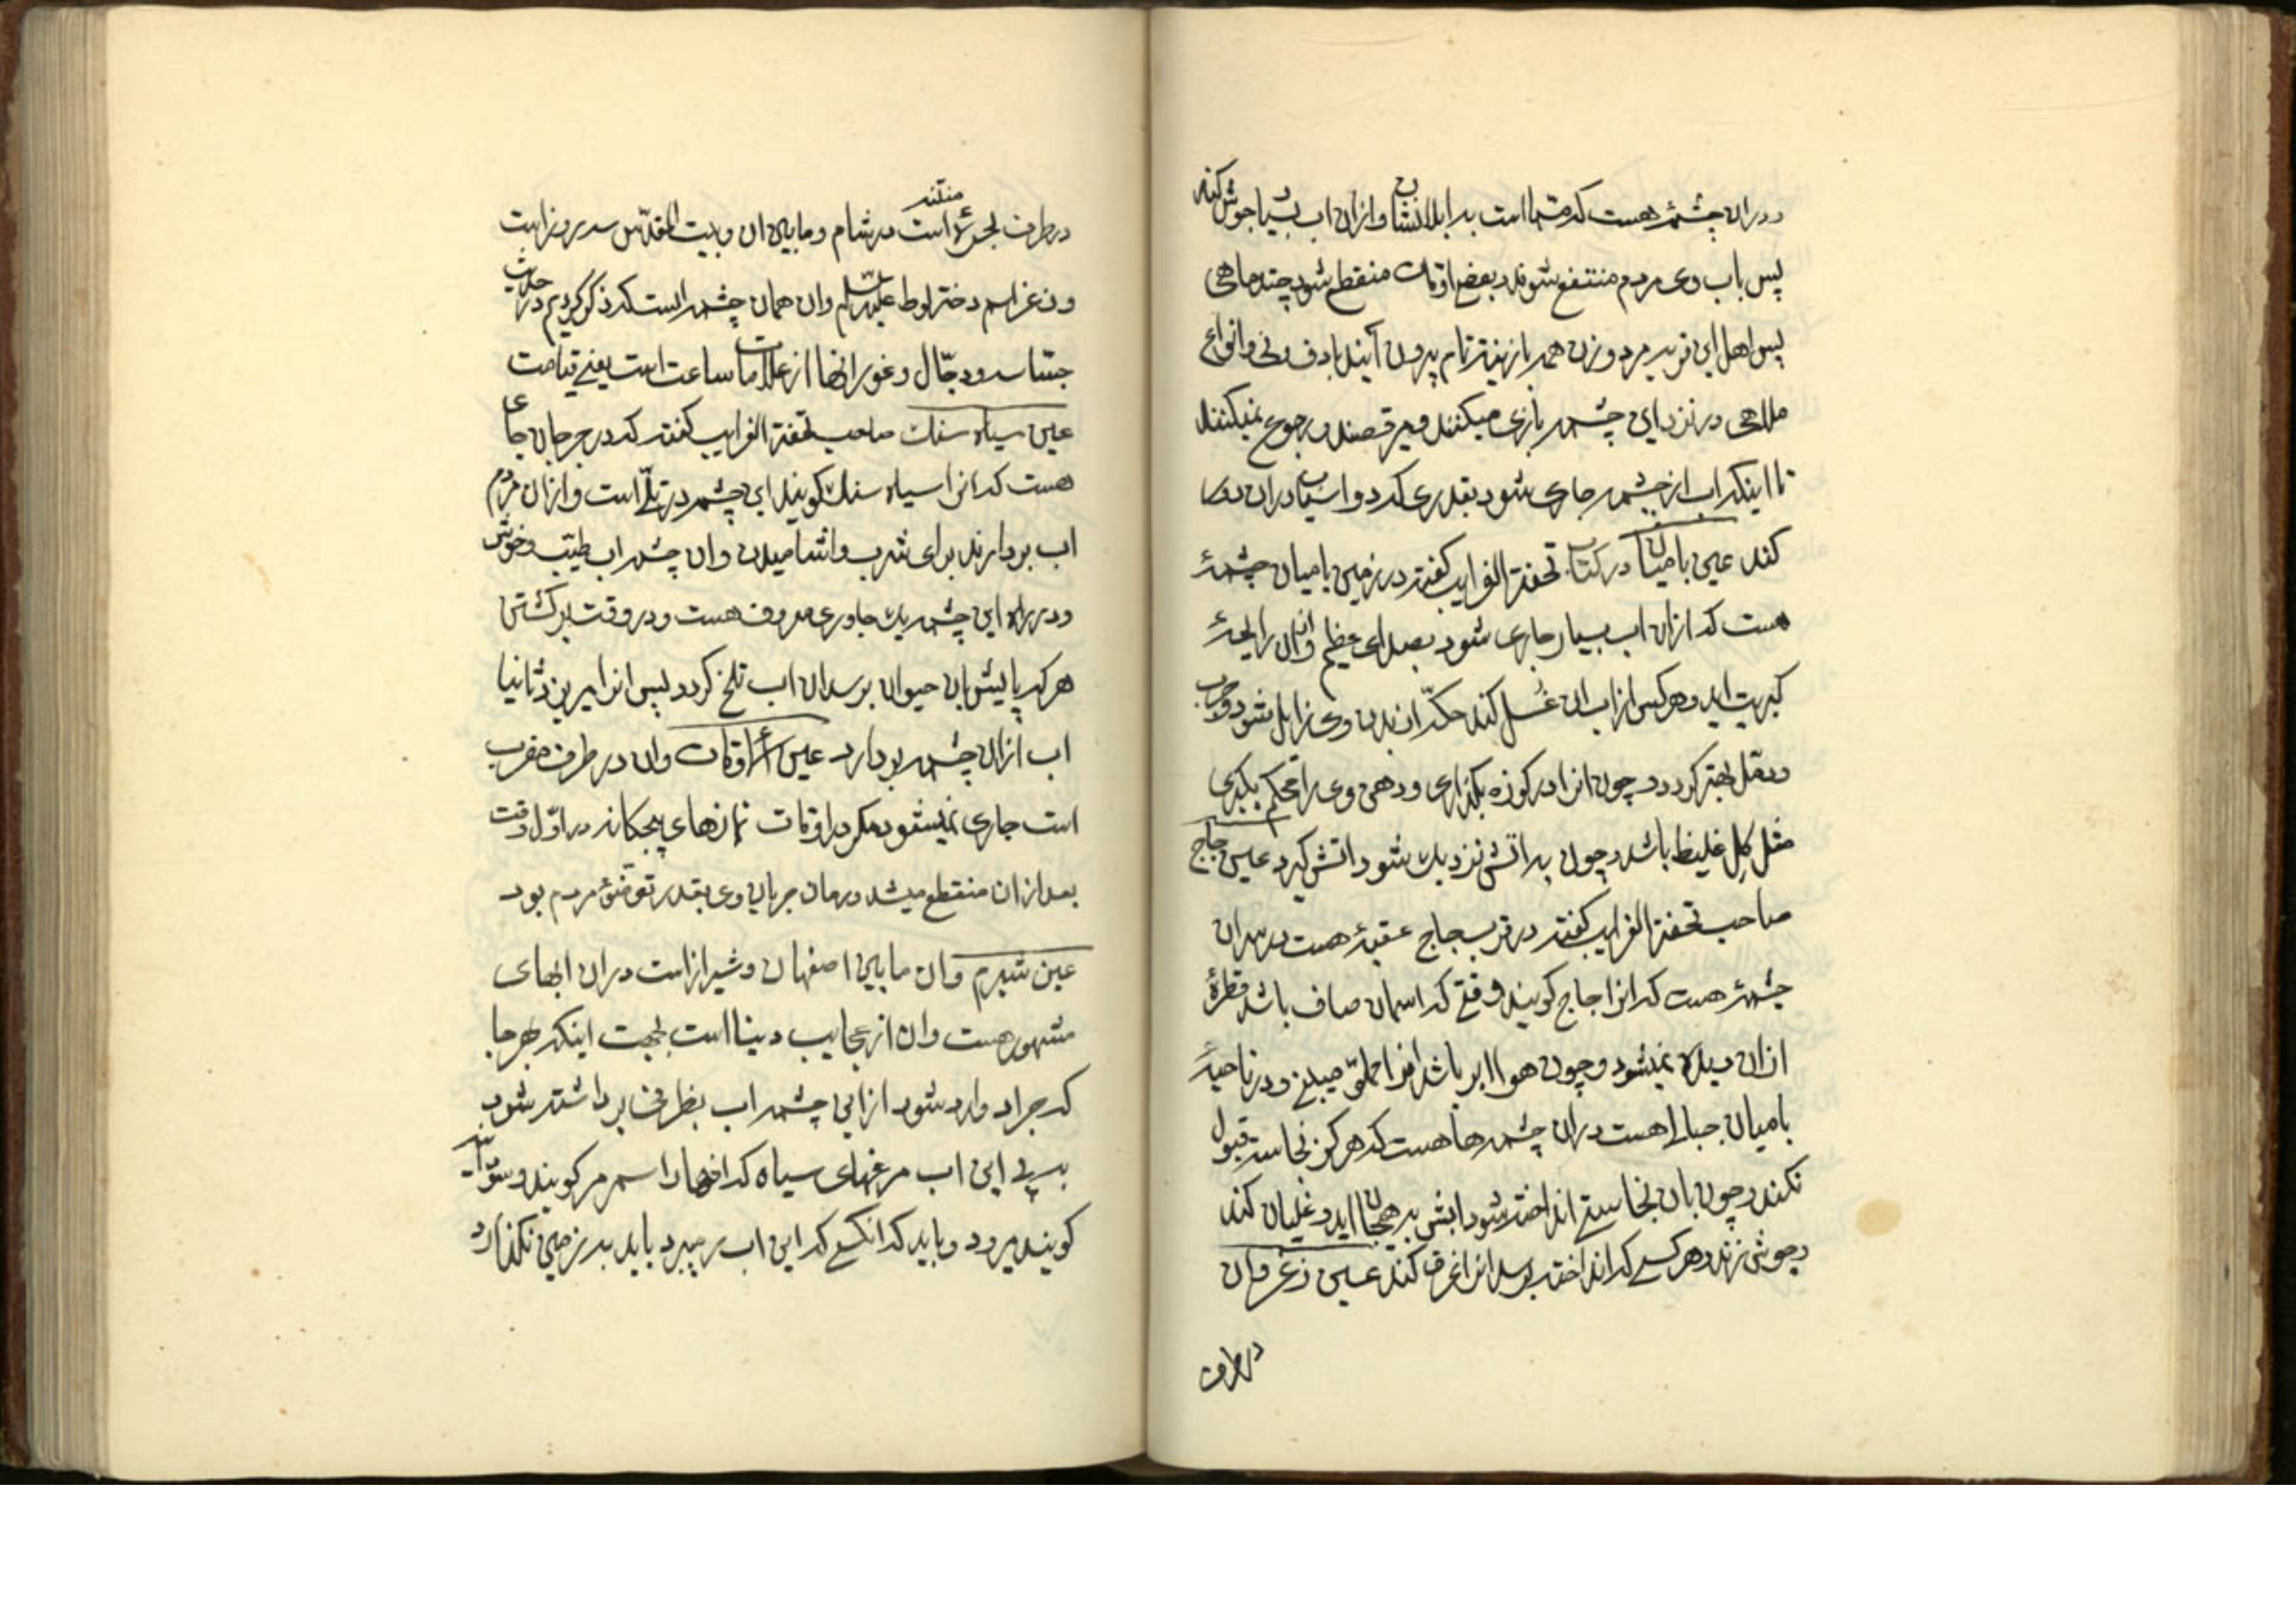 ودران چشمهٔ هست که مسما است به ابلابستان وازان اب بسیار جوش کند
پس باب وی مردم منتفع شوند و بعض اوقات منقطع شود چند ماهی
پس اهل این قریه مرد و زن همه بازینة تام بیرون آیند با دف و نی وانواع
ملاهی در نزد این چشمه بازی میکنند و میرقصند و رجوع نمیکنند
تا اینکه اب از چشمه جاری شود بقدری که دو اسیاب دران دور
کند عین بامیان در کتاب تحفة الغرایب کفته در زمین بامیان چشمهٔ
هست که ازان اب بسیار جاری شود بصدای عظیم وازان رایحهٔ
کبریت اید و هر کس از اب ان غسل کند حکّه از بدن وی زایل شود و جرب
ودمّل بهتر کردد و چون انرا در کوزه بکذاری و دهن وی را محکم بکیری
مثل کل غلیظ باشد و چون به اتش نزدیک شود اتش کیرد عین جاج
صاحب تحفة الغرایب کفته در قرب جاج عقبهٔ هست در سر ان
چشمهٔ هست که انرا جاج کویند وقتی که اسمان صاف باشد قطرهٔ
ازان دیده نمیشود و چون هوا ابر باشد انرا مملوّ میبینی و در ناحیهٔ
بامیان جبالی هست دران چشمه‌ها هست که هرکز نجاست قبول
نکند و چون بان نجاستی انداخته شود ابش به هیجان اید و غلیان کند
و جوش زند و هر کسی که انداخته برسد انرا غرق کند عین زغر وان
در طرف
در طرف بحیرهٔ منتنه است در شام و مابین ان و بیت المقدّس سه روز است
وزغر اسم دختر لوط علیه السلام وان همان چشمه است که ذکر کردیم در حدیث
جسّاسه و دجّال و غور انها از علامات ساعت است یعنی قیامت
عین سیاه سنک صاحب تحفة الغرایب کفته که در جرجان جای
هست که انرا سیاه سنک کویند این چشمه در تلّ است وازان مردم
اب بردارند برای شرب واشامیدن وان چشمه اب طیّب و خوش
ودر راه این چشمه یک جاوری معروف هست و در وقت برکشتن
هر که پایش بان حیوان برسد ان اب تلخ کردد پس انرا میریزد ثانیا
اب ازان چشمه بردارد عین اوقات وان در طرف مغرب
است جاری نمیشود مکر در اوقات نمازهای پنجکانه در اوّل وقت
بعد ازان منقطع میشد و زمان جریان وی بقدر توضئ مردم بود
عین شیرم وان مابین اصفهان و شیراز است دران ابهای
مشهور هست وان از عجایب دنیا است بجهت اینکه هر جا
که جراد وارد شود از این چشمه اب بظرفی برداشته شود
به پی این اب مرغهای سیاه که انها را سمرمر کویند و
کویند میرود و باید که انکسی که این اب را میبرد باید به زمین نکذارد